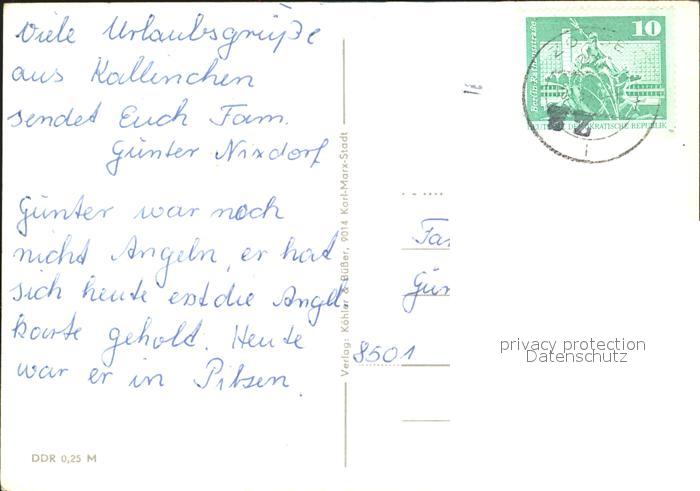 Viele Urlaubsgrüße
aus Kallinchen
sendet Euch Fam.
Günter Nixdorf
Günter war noch
nicht Angeln, er hat
sich heute erst die Angel
karte geholt. Heute
war er in Pilzen.
DDR 0,25 M
Verlag: Köhler & Büßer, 9014 Karl-Marx-Stadt
10
Berlin-Rathausstraße
DEUTSCHE DEMOKRATISCHE REPUBLIK
Fa
Gün
8501
privacy protection
Datenschutz